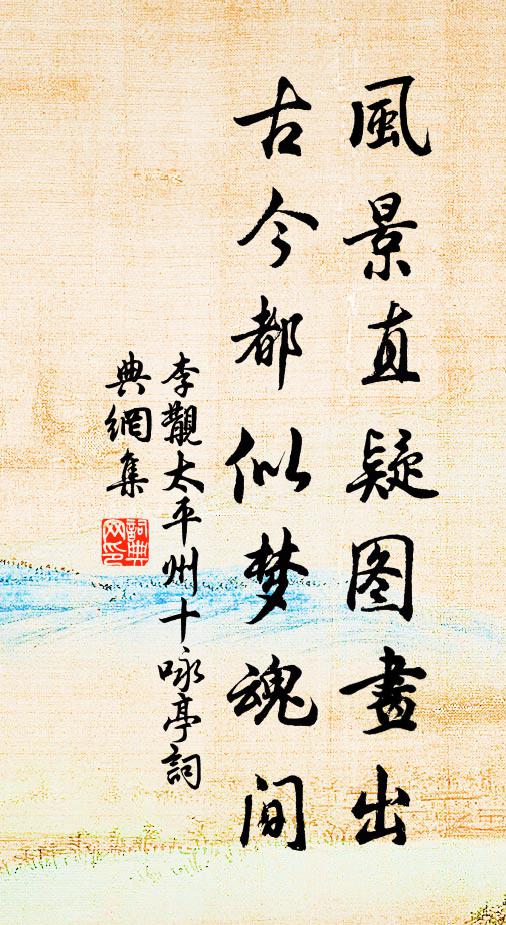 風景直疑图畫出
古今都似梦魂间
李觀太平州十咏亭詞
典網集
詞典网印